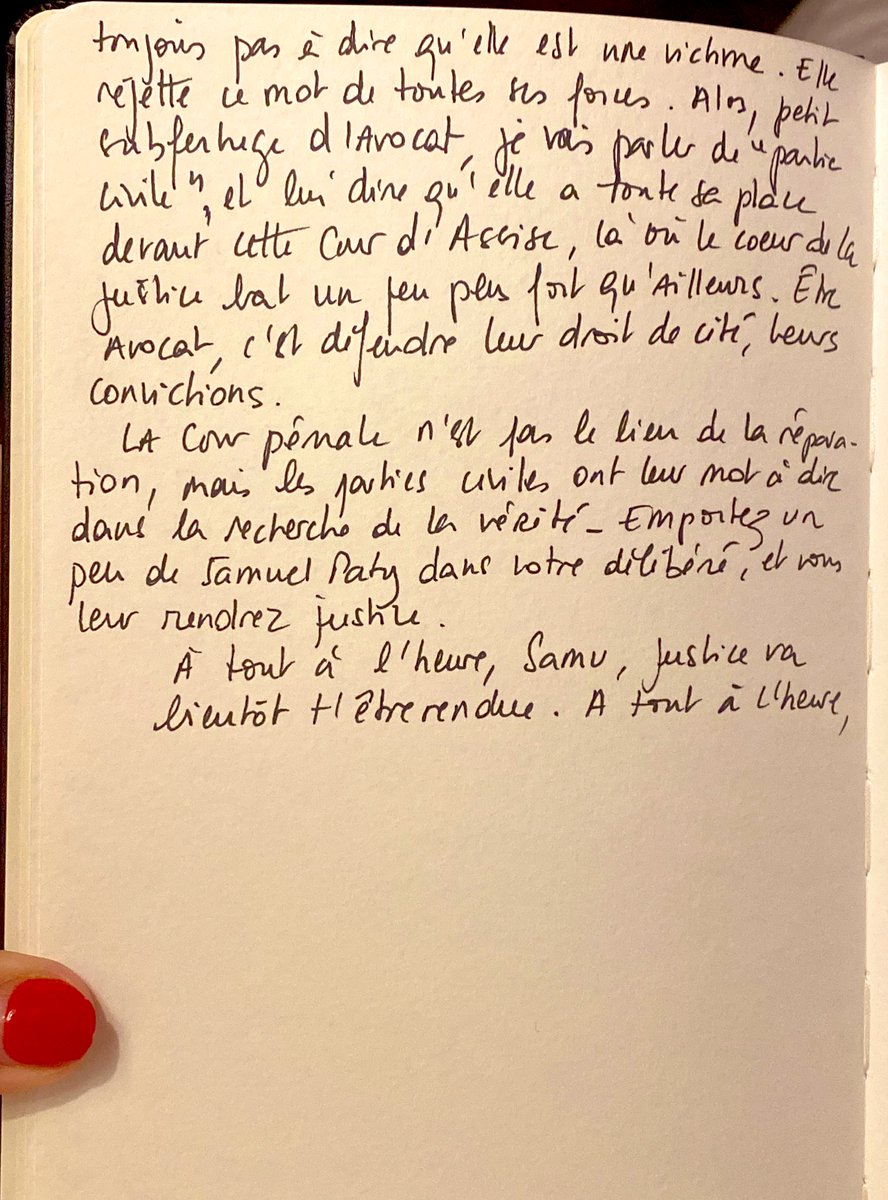 toujours pas à dire qu'elle est une victime. Elle
rejette ce mot de toutes ses forces. Alors, petit
subferfuge d'Avocat, je vais parler de "partie
civile", et lui dire qu'elle a toute sa place
devant cette Cour d'Assise, là où le coeur de la
justice bat un peu plus fort qu'Ailleurs. Être
Avocat, c'est défendre leur droit de cité, leurs
convictions.
LA Cour pénale n'est pas le lieu de la répara-
tion, mais les parties civiles ont leur mot à dire
dans la recherche de la vérité - Emportez un
peu de Samuel Paty dans votre délibéré, et vous
leur rendrez justice.
À tout à l'heure, Samu, justice va
bientôt t'être rendue. A tout à l'heure,